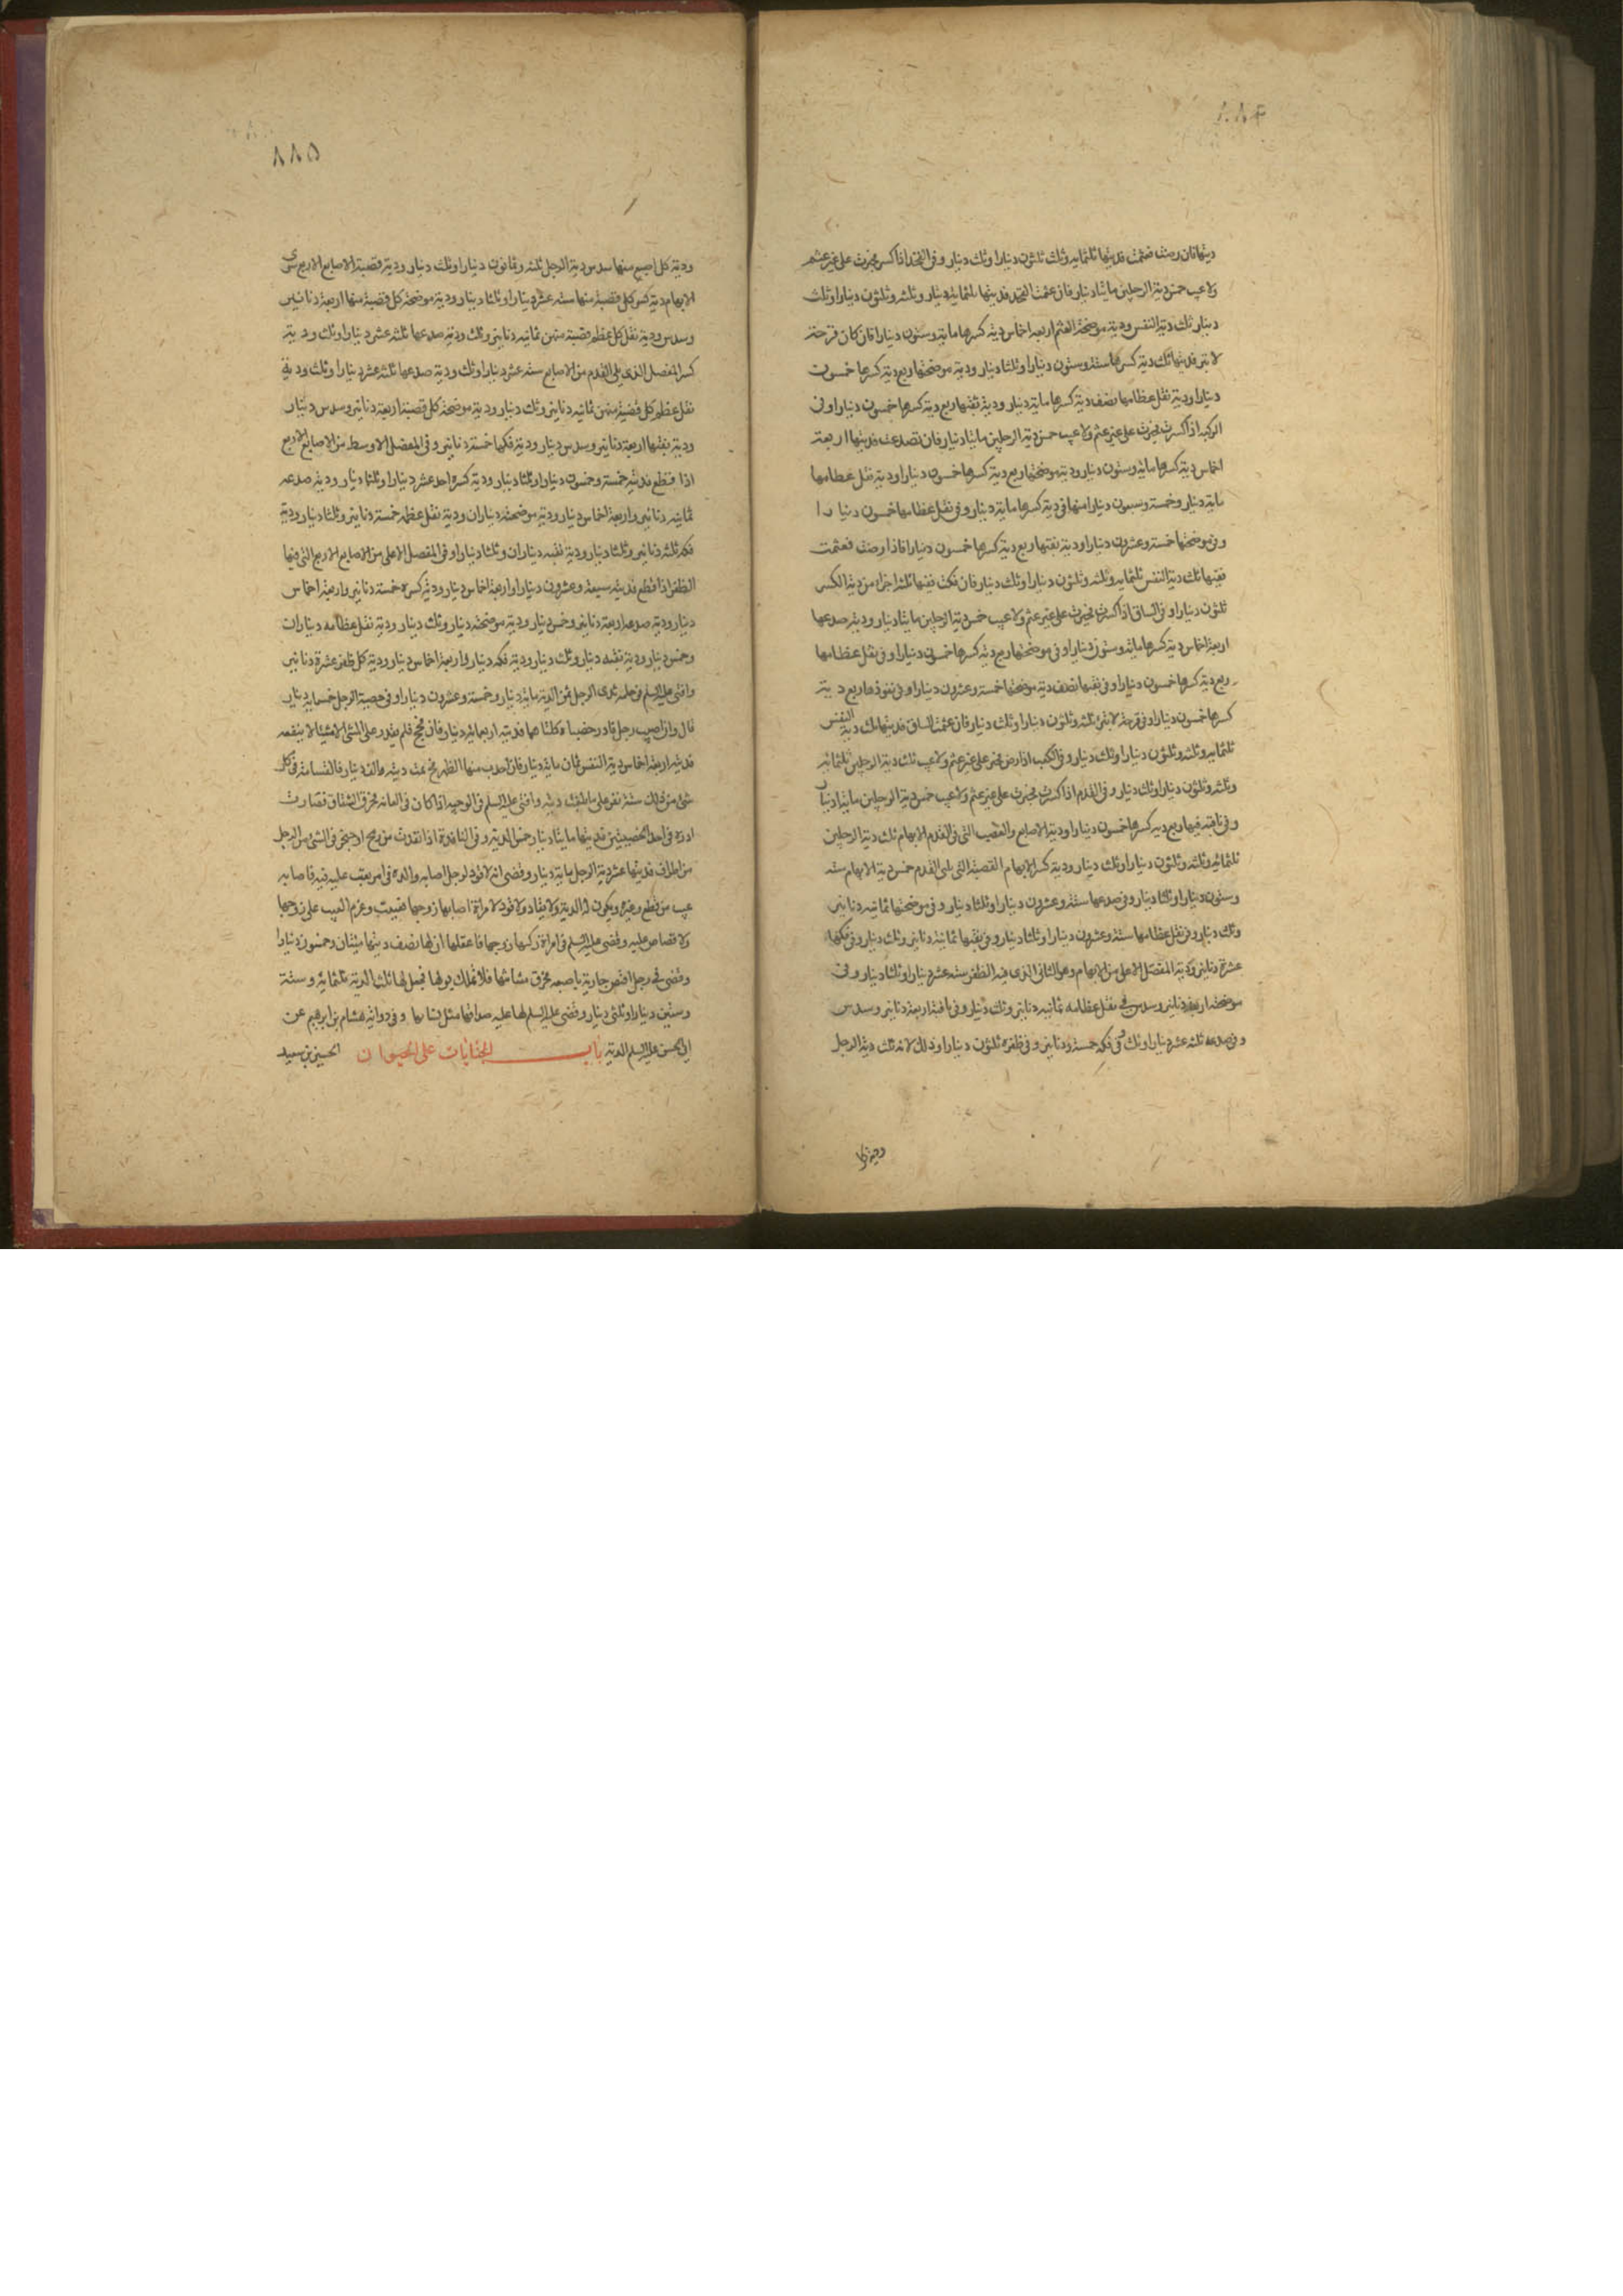 ٨٨٤
ديتها فان رضت فعثمت فديتها ثلثمايه وثلث ثلثون دينارا وثلث دينار وفي الفخذ اذا كسر فجبرت على غير عثم
ولا عيب خمس دية الرجلين مائتا دينار فان عثمت الفخذ فديتها ثلثماية دينار وثلثه وثلثون دينارا وثلث
دينار ثلث دية النفس ودية موضحة العثم اربعه اخماس دية كسرها مايه وستون دينارا فان كان قرحة
لا تبر فديتها ثلث دية كسرها ستة وستون دينارا وثلثا دينار ودية موضحتها ربع دية كسرها خمسون
دينارا ودية نقل عظامها نصف دية كسرها ماية دينار ودية نقبها ربع دية كسرها خمسون دينارا وفي
الركبه اذا كسرت فجبرت على غير عثم ولا عيب خمس دية الرجلين مائتا دينار فان تصدعت فديتها اربعة
اخماس دية كسرها ماية وستون دينار ودية موضحتها ربع دية كسرها خمسون دينارا ودية نقل عظامها
ماية دينار وخمسة وسبعون دينارا منها في دية كسرها ماية دينار وفي نقل عظامها خمسون دينارا
وفي موضحتها خمسة وعشرون دينارا ودية نقبها ربع دية كسرها خمسون دينارا فاذا رضت فعثمت
ففيها ثلث دية النفس ثلثمايه وثلثه وثلثون دينارا وثلث دينار فان فكت ففيها ثلثه اجزاء من دية الكسر
ثلثون دينارا وفي الساق اذا كسرت فجبرت على غير عثم ولا عيب خمس دية الرجلين مايتا دينار ودية صدعها
اربعة اخماس دية كسرها مايه وستون دينارا وفي موضحتها ربع دية كسرها خمسون دينارا وفي نقل عظامها
ربع دية كسرها خمسون دينارا وفي نقبها نصف دية موضحتها خمسة وعشرون دينارا وفي نفوذها ربع دية
كسرها خمسون دينارا وفي قرحة لا تبرئ ثلثه وثلثون دينارا وثلث دينار فان عثمت الساق فديتها ثلث دية النفس
ثلثمايه وثلثه وثلثون دينارا وثلث دينار وفي الكعب اذا رض فجبر على غير عثم ولا عيب ثلث دية الرجلين ثلثمائه
وثلثه وثلثون دينارا وثلث دينار وفي القدم اذا كسرت فجبرت على غير عثم ولا عيب خمس دية الرجلين مايتا دينار
وفي ناقبه فيها ربع ديه كسرها خمسون دينارا ودية الاصابع والقصب التي في القدم الابهام ثلث دية الرجلين
ثلثمائه وثلثه وثلثون دينارا وثلث دينار ودية كسر الابهام القصبة التي تلي القدم خمس دية الابهام سته
وستون دينارا وثلثا دينار وفي صدعها ستة وعشرون دينارا وثلثا دينار وفي موضحتها ثمانيه دنانير
وثلث دينار وفي نقل عظامها ستة وعشرون دينارا وثلثا دينار وفي نقبها ثمانية دنانير وثلث دينار وفي فكها
عشرة دنانير ودية المفصل الاعلى من الابهام وهو الثاني الذي فيه الظفر سته عشر دينارا وثلثا دينار وفي
موضحته اربعه دنانير وسدس في نقل عظامه ثمانيه دنانير وثلث دينار وفي ناقبته اربعة دنانير وسدس
وفي صدعه ثلثه عشر دينارا وثلث وفي فكه خمسة دنانير وفي ظفره ثلثون دينارا وذلك لانه ثلث دية الرجل
٨٨٥
ودية كل اصبع منها سدس دية الرجل ثلثه وثمانون دينارا وثلث دينار ودية قصبة الاصابع الاربع سوى
الابهام دية كسر كل قصبة منها ستة عشر دينارا وثلثا دينار ودية موضحة كل قصبة منها اربعة دنانير
وسدس ودية نقل كل عظم قصبة منهن ثمانيه دنانير وثلث ودية صدعها ثلثه عشر دينارا وثلث ودية
كسر المفصل الذي يلي القدم من الاصابع ستة عشر دينارا وثلث ودية صدعها ثلثه عشر دينارا وثلث ودية
نقل عظم كل قصبة منهن ثمانيه دنانير وثلث دينار ودية موضحة كل قصبة اربعة دنانير وسدس دينار
ودية نقبها اربعة دنانير وسدس دينار ودية فكها خمسة دنانير وفي المفصل الاوسط من الاصابع الاربع
اذا قطع فديته خمسة وخمسون دينارا وثلثا دينار ودية كسره احد عشر دينارا وثلثا دينار ودية صدعه
ثمانيه دنانير واربعة اخماس دينار ودية موضحته ديناران ودية نقل عظمه خمسة دنانير وثلثا دينار ودية
فكه ثلثه دنانير وثلثا دينار ودية نقبه ديناران وثلثا دينار وفي المفصل الاعلى من الاصابع الاربع التي فيها
الظفر اذا قطع فديته سبعة وعشرون دينارا واربعة اخماس دينار ودية كسره خمسة دنانير واربعة اخماس
دينار ودية صدعه اربعة دنانير وخمس دينار ودية موضحته دينار وثلث دينار ودية نقل عظامه ديناران
وخمس دينار ودية نقبه دينار وثلث دينار ودية فكه دينار واربعة اخماس دينار ودية كل ظفر عشرة دنانير
وافتى عليه السلم في حلمة ثدي الرجل ثمن الدية ماية دينار وخمسة وعشرون دينارا وفي خصية الرجل خمسماية دينار
قال وان اصيب رجل فادر خصيتاه كلتاهما فديته اربعمائة دينار فان فحج فلم يقدر على المشي الا مشيا لا ينفعه
فديته اربعة اخماس دية النفس ثمان ماية دينار فان احدب منها الظهر فحينئذ تمت ديته والف دينار فالقسامة في كل
شي من ذلك ستة نفر على ما بلغت ديته وافتى عليه السلم في الوجيه اذا كان في العانه فخرق الصفاق فصارت
ادرة في احدى الخصيتين فديتها مايتا دينار خمس الدية وفي النافذة اذا نفذت من رمح او خنجر في الشيء من الرجل
من اطرافه فديتها عشر دية الرجل ماية دينار وقضى انه لا قود لرجل اصابه والده في امر يعيب عليه فيه فاصابه
عيب من قطع وغيره ويكون له الدية ولا يقاد ولا قود لامراة اصابها زوجها فعيبت وغرم العيب على زوجها
ولا قصاص عليه وقضى عليه السلم في امراة ركبها زوجها فاعفلها ان لها نصف ديتها مئتان وخمسون دينارا
وقضى في رجل افتض جارية باصبعه فخرق مثانتها فلا تملك بولها فجعل لها ثلث الدية ثلثماية وستة
وستين دينارا وثلثي دينار وقضى عليه السلم لها عليه صداقها مثل نسائها وفي رواية هشام بن ابرهيم عن
ابي الحسن عليه السلم الدية باب الجنايات على الحيوان الحسين بن سعيد